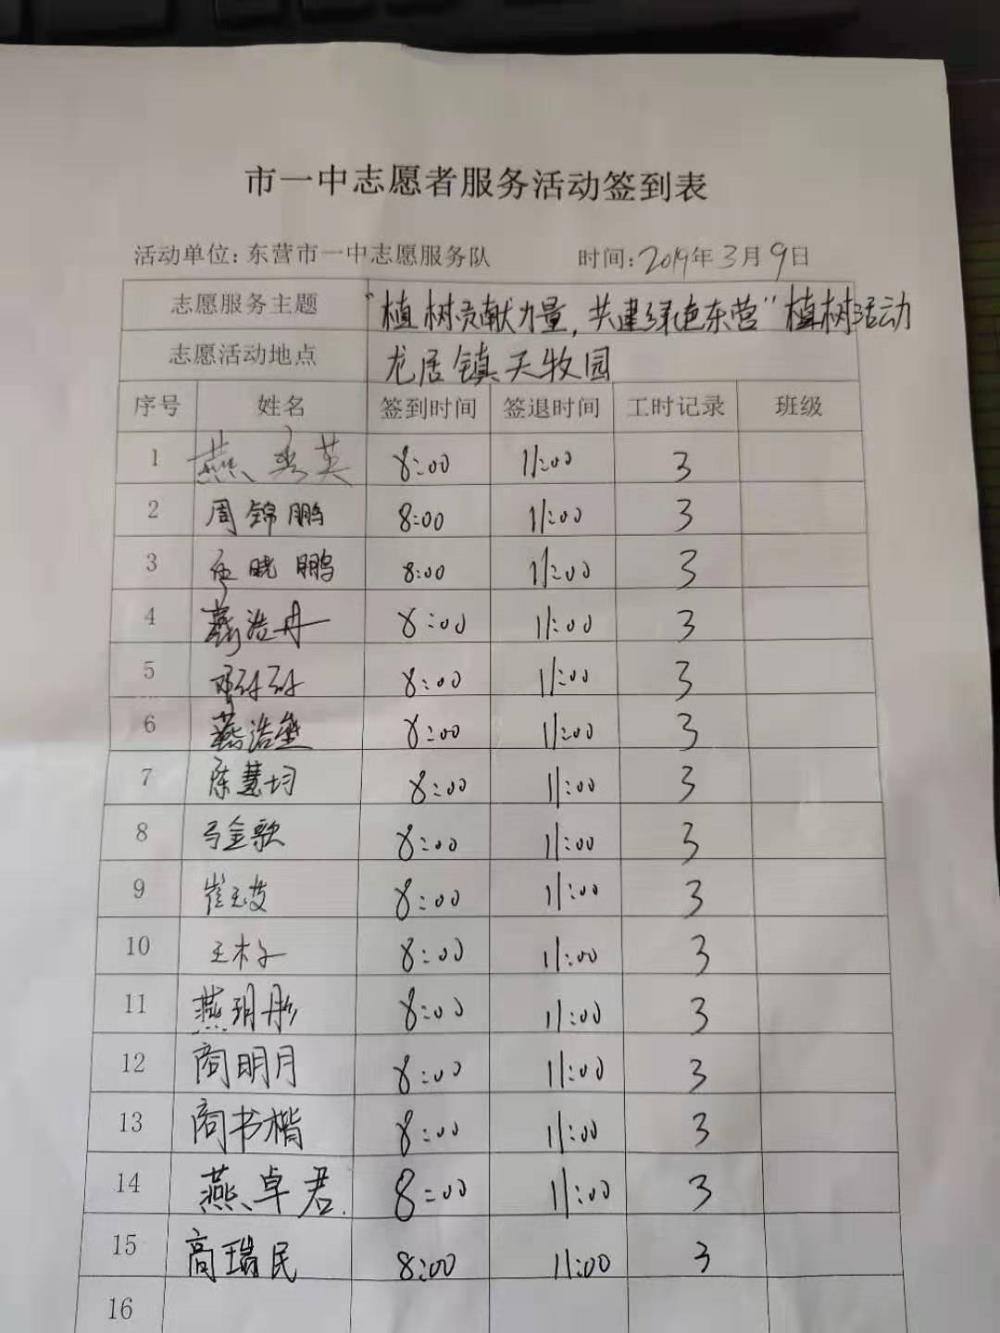 市一中志愿者服务活动签到表
活动单位: 东营市一中志愿服务队 时间: 2019年3月9日
志愿服务主题 “植树贡献力量, 共建绿色东营”植树活动
志愿活动地点 龙居镇天牧园
序号 姓名 签到时间 签退时间 工时记录 班级
1 燕秀英 8:00 11:00 3
2 周锦鹏 8:00 11:00 3
3 晓鹏 8:00 11:00 3
4 燕浩丹 8:00 11:00 3
5 8:00 11:00 3
6 燕浩 8:00 11:00 3
7 陈慧均 8:00 11:00 3
8 马金歌 8:00 11:00 3
9 崔玉 8:00 11:00 3
10 王木子 8:00 11:00 3
11 燕玥彤 8:00 11:00 3
12 商明月 8:00 11:00 3
13 商书楷 8:00 11:00 3
14 燕卓君 8:00 11:00 3
15 高瑞民 8:00 11:00 3
16